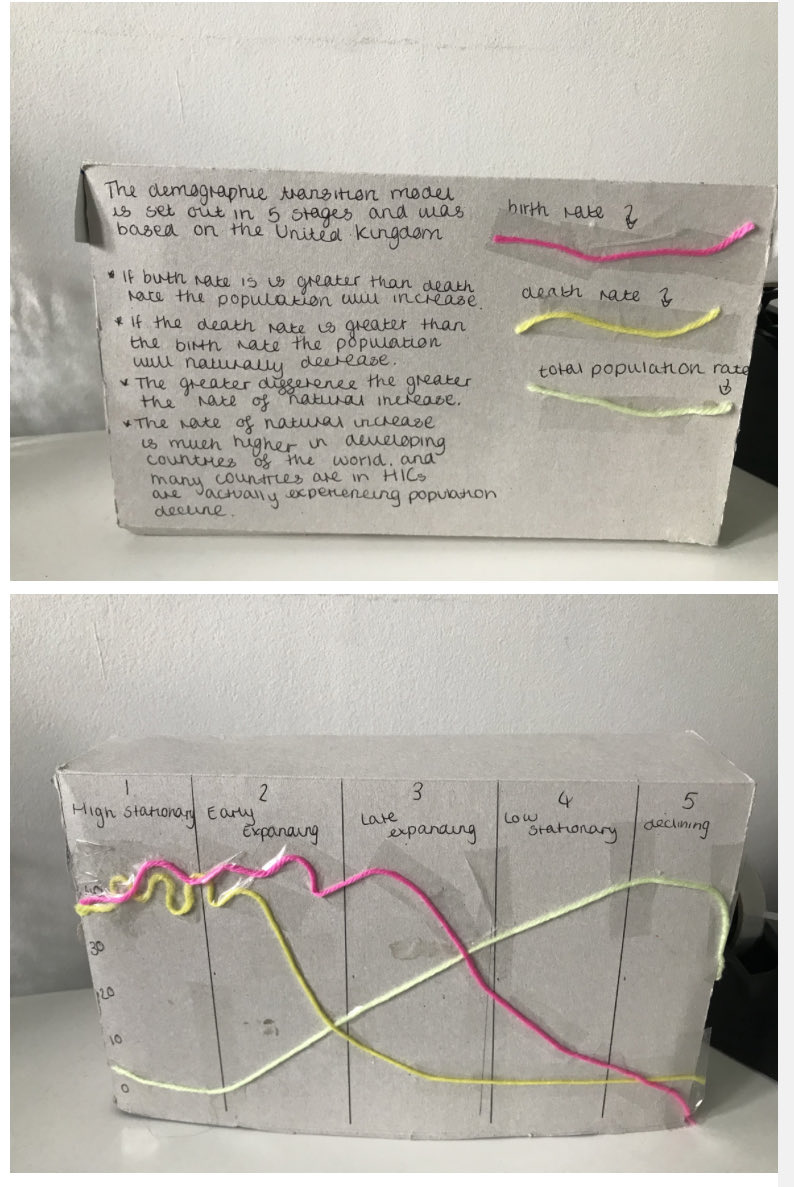 The demographic transition model
is set out in 5 stages and was
based on the United Kingdom
* If birth rate is is greater than death
rate the population will increase.
* If the death rate is greater than
the birth rate the population
will naturally decrease.
* The greater difference the greater
the rate of natural increase.
* The rate of natural increase
is much higher in developing
countries of the world, and
many countries are in HICs
are actually experiencing population
decline.
birth rate
death rate
total population rate
1
High Stationary
2
Early
Expanding
3
Late
expanding
4
Low
stationary
5
declining
40
30
20
10
0